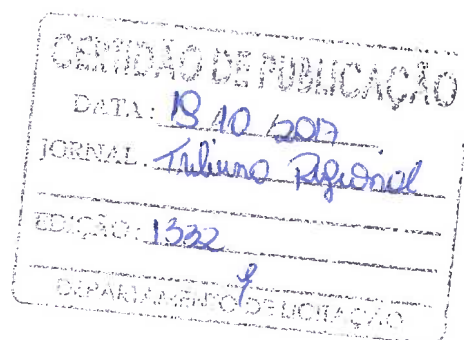 CERTIDÃO DE PUBLICAÇÃO
DATA: 19 10 /2017
JORNAL. Tribuna Regional
EDIÇÃO: 1332
DEPARTAMENTO DE LICITAÇÃO